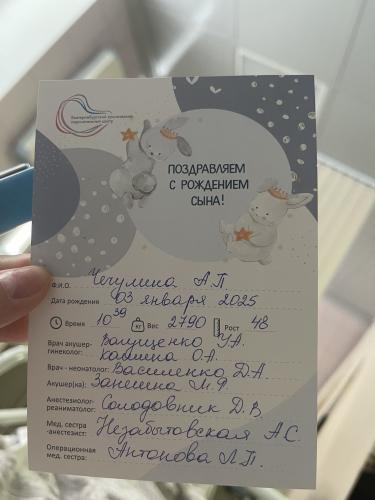 Екатеринбургский клинический
перинатальный центр
ПОЗДРАВЛЯЕМ
С РОЖДЕНИЕМ
СЫНА!
Ф.И.О. Чегулина А.П.
Дата рождения 03 января 2025
Время 10 39 Вес 2790 Рост 48
Врач акушер-
гинеколог: Валущенко У.А.
Хомина О.А.
Врач - неонатолог: Василенко Д.А.
Акушер(ка): Занешина М.Ф.
Анестезиолог-
реаниматолог: Солодовник Д.В.
Мед. сестра
-анестезист: Незабытовская А.С.
Операционная
мед. сестра: Антонова Л.П.